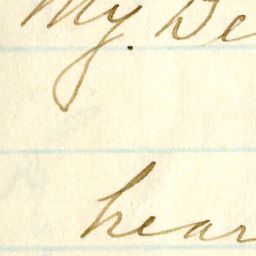 My. De
hear